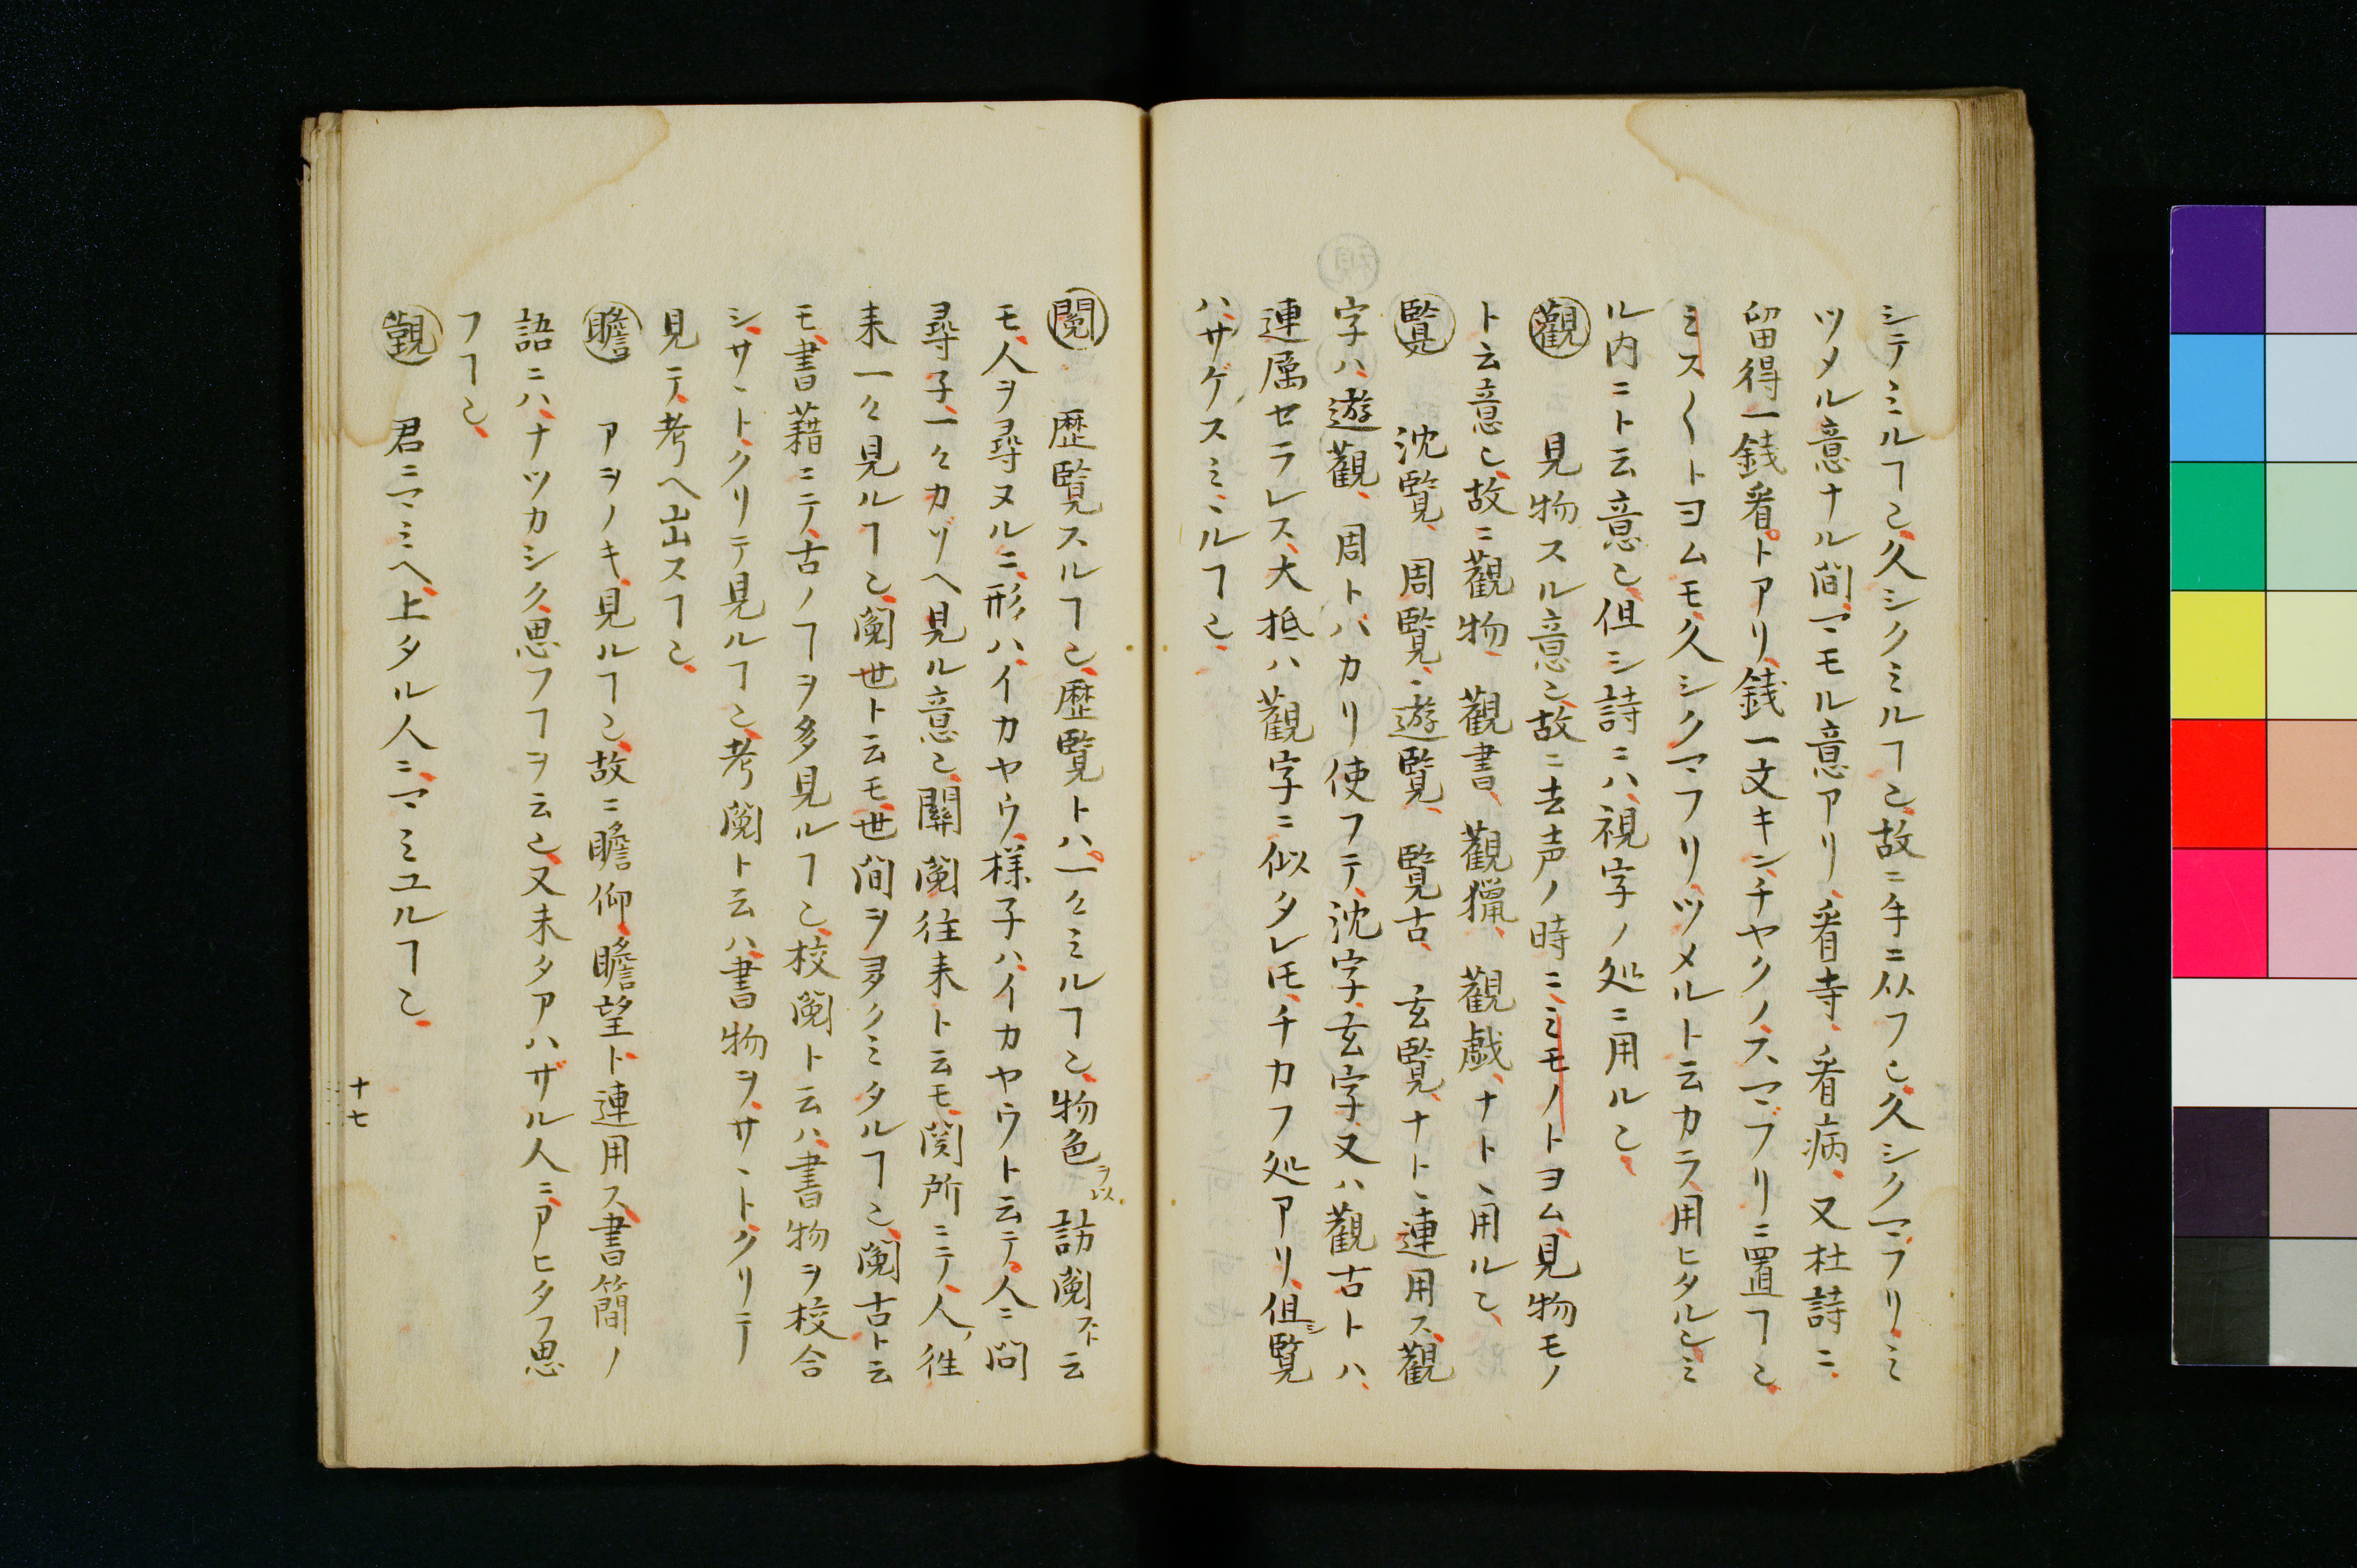 シテミルヿ也久シクミルヿ也故ニ手ニ从フ也久シクマブリミ
ツメル意ナル間マモル意アリ看寺看病又杜詩ニ
留得一銭看トアリ銭一文キンチヤクノスマブリニ置ヿ也
ミス〱トヨムモ久シクマフリツメルト云カラ用ヒタル也ミ
ル内ニト云意也但シ詩ニハ視字ノ処ニ用ル也
觀 見物スル意也故ニ去声ノ時ニミモノトヨム見物モノ
ト云意也故ニ觀物觀書觀獵觀戯ナトヽ用ル也
覧 沈覧周覧遊覧覧古玄覧ナトヽ連用ス觀
字ハ遊觀周トハカリ使フテ沈字玄字又ハ觀古トハ
連属セラレス大抵ハ觀字ニ似タレ𪜈チカフ処アリ但シ覧
ハサゲスミミルヿ也
閲 歴覧スルヿ也歴覧トハ一々ミルヿ也物色ヲ以訪閲スト云
モ人ヲ尋ヌルニ形ハイカヤウ様子ハイカヤウト云テ人ニ問
尋子一々カゾヘ見ル意也關閲往来ト云モ関所ニテ人ノ往
来一々見ルヿ也閲世ト云モ世間ヲ多クミタルヿ也閲古ト云
モ書藉ニテ古ノヿヲ多見ルヿ也校閲ト云ハ書物ヲ校合
シサヽトクリテ見ルヿ也考閲ト云ハ書物ヲサヽトクリテ
見テ考ヘ出スヿ也
瞻 アヲノキ見ルヿ也故ニ瞻仰瞻望ト連用ス書簡ノ
語ニハナツカシク思フヿヲ云也又未タアハザル人ニアヒタク思
フヿ也
覲 君ニマミヘ上タル人ニマミユルヿ也
十七